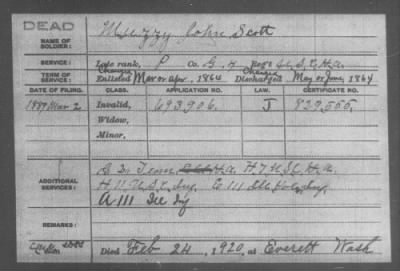 DEAD
NAME OF SOLDIER: Muzzy John Scott
SERVICE: Late rank, P Co. G. 7 Reg't U.S.C.H.A.
TERM OF SERVICE: Enlisted Mar or Apr., 1864 Discharged May or June, 1864
DATE OF FILING. CLASS. APPLICATION NO. LAW. CERTIFICATE NO.
1889 Mar 2 Invalid, 693,906. J 829,555.
Widow,
Minor,
ADDITIONAL SERVICES: Tenn H.A. H. 7 H.A.
H 11 U.S.C. Inf. C. 111 Ill Vol. Inf.
A 111 Ill Inf
REMARKS:
Died Feb 24, 1920, at Everett Wash.